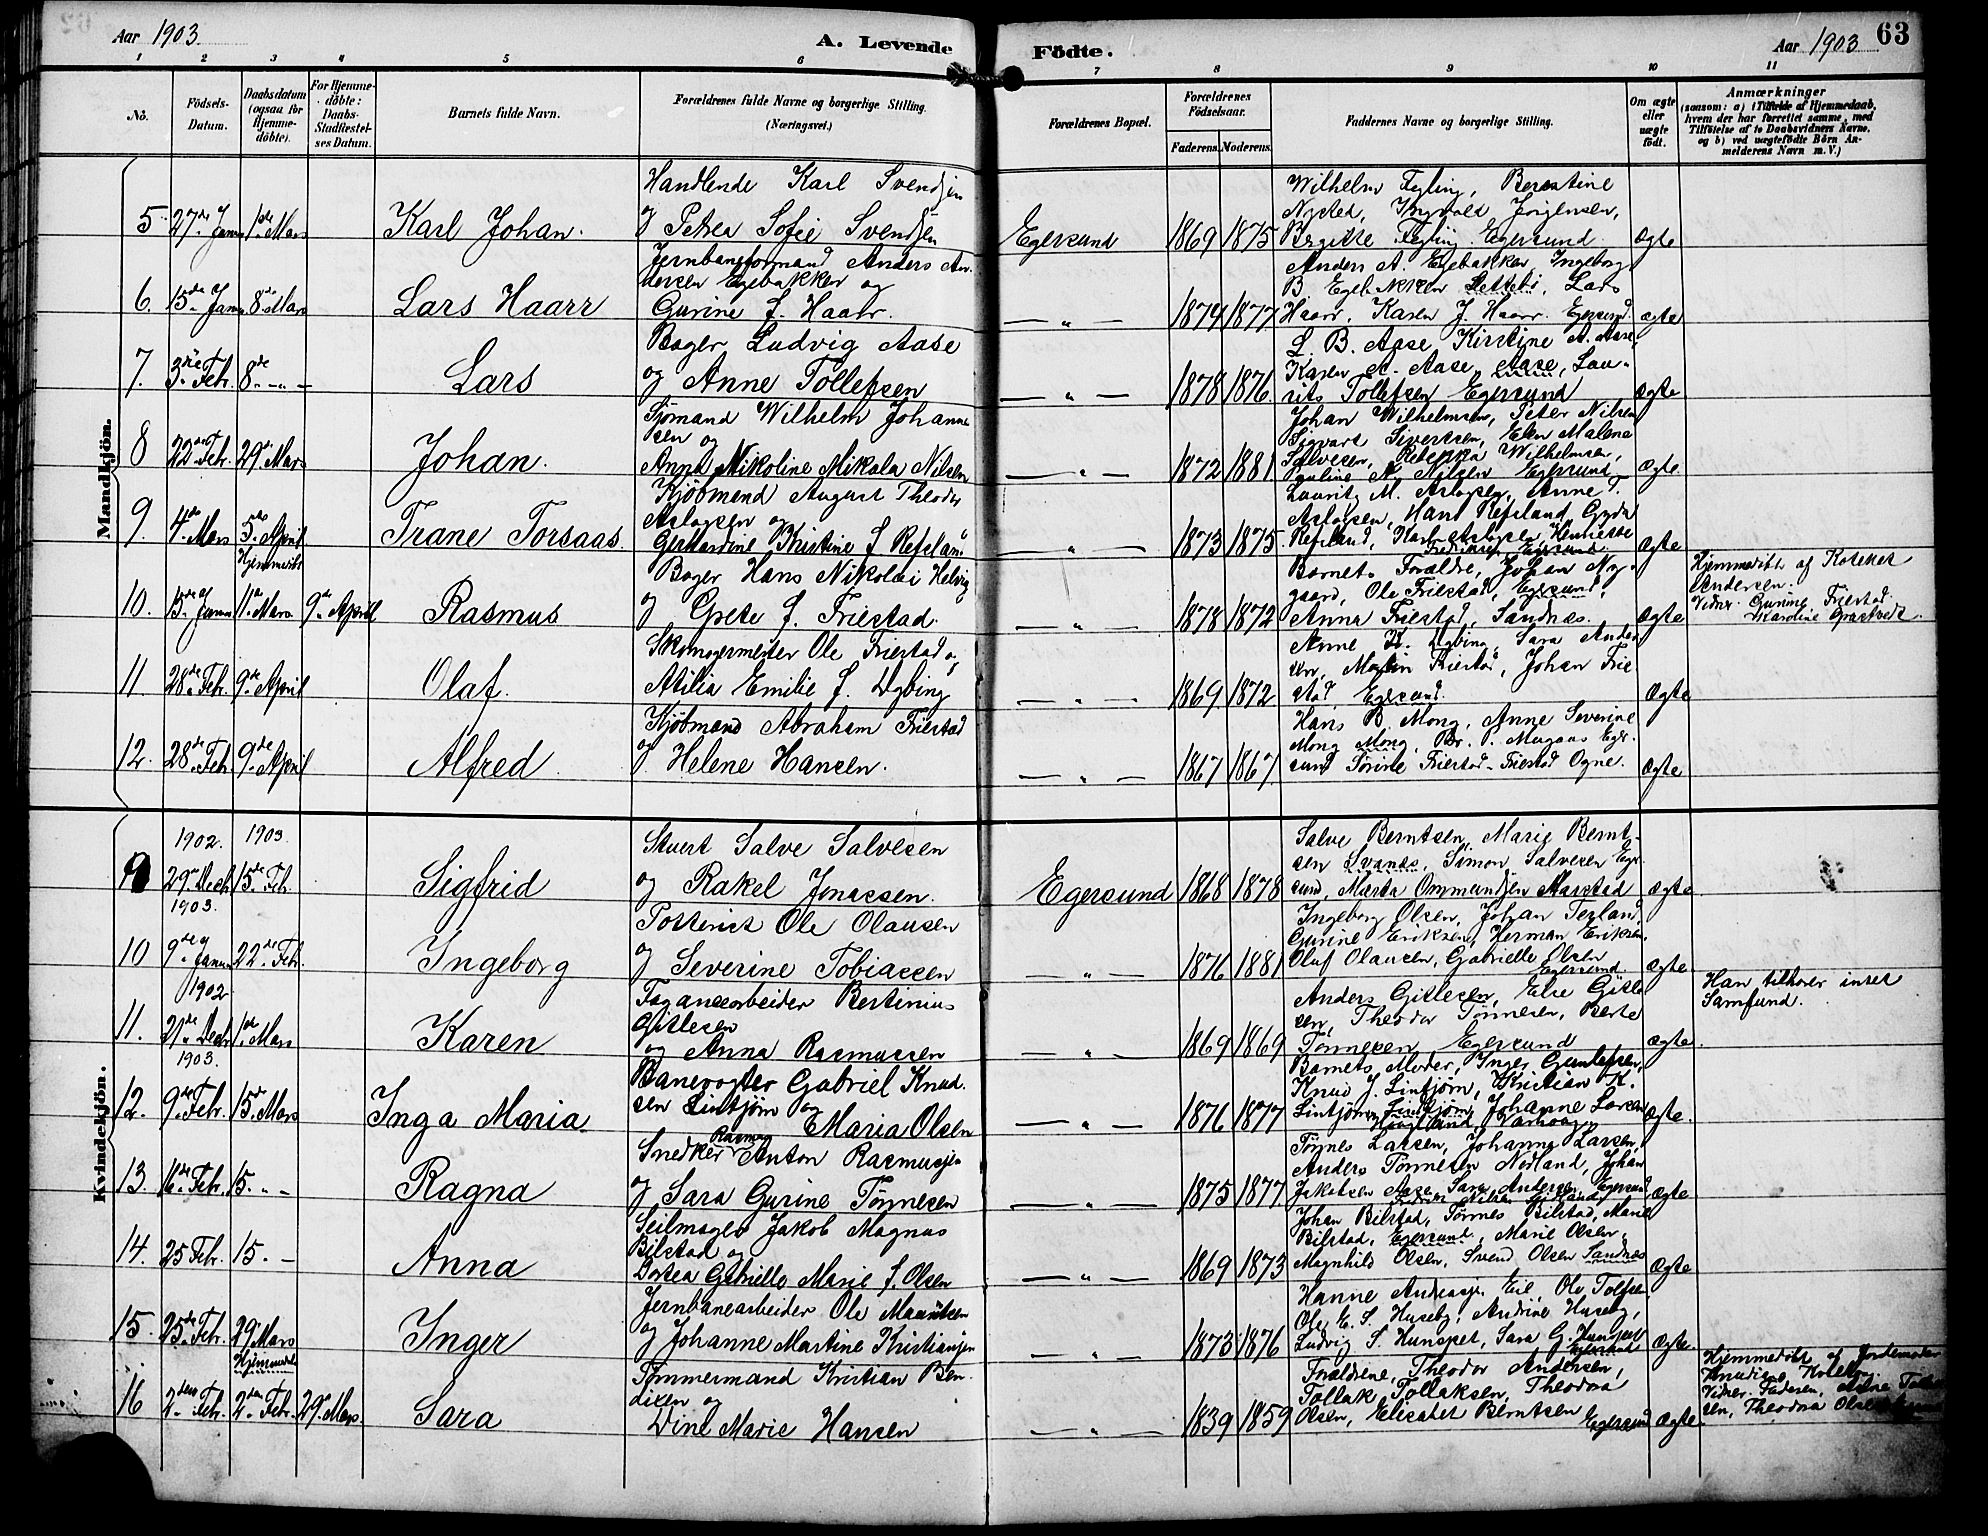 Aar 1903. A. Levende Födte. Aar 1903 63
1 2 3 4 5 6 7 8 9 10 11
No.
Födsels-
Datum.
Daabsdatum
(ogsaa for
Hjemme-
döbte).
For Hjemme-
döbte:
Daabs-
Stadfæstel-
ses Datum.
Barnets fulde Navn.
Forældrenes fulde Navne og borgerlige Stilling.
(Næringsvei.)
Forældrenes Bopæl.
Forældrenes
Födselsaar.
Faderens. Moderens.
Faddernes Navne og borgerlige Stilling.
Om ægte
eller
uægte
födt.
Anmærkninger
(saasom: a) i Tilfælde af Hjemmedaab,
hvem der har forrettet samme, med
Tilföielse af to Daabsvidners Navne,
og b) ved uægtefödte Börn An-
melderens Navn m. V.)
Mandkjön.
5. 27de Janr 1ste Mars Karl Johan.
Handlende Karl Svendsen
og Petrea Sofie Svendsen
Egersund 1869 1875
Wilhelm Fegling, Berntine
Nysted, Ingvald Jörgensen,
Birgitte Fegling. Egersund
Ægte
6. 15de Janr 8de Mars Lars Haarr
Jernbaneformand Anders An-
dersen Egebakken og
Gurine f. Haarr.
— " — 1874 1877
Anders A. Egebakken, Ingeborg
B Egebakken Slettebö, Lars
Haarr, Karen J. Haarr. Egersund.
ægte
7. 3die Febr. 8de - " - Lars
Bager Ludvig Aase
og Anne Tollefsen
— " — 1878 1876
L. B. Aase Kirstine A. Aase,
Karen A. Aase, Aase, Lau-
rits Tollefsen Egersund
Ægte
8 22de Febr. 29de Mars Johan.
Sjömand Wilhelm Johanne
sen og
Anna Nikoline Mikala Nilsen
— " — 1872 1881
Johan Wilhelmsen, Peter Nilsen
Sigvart Sivertsen, Elen Malene
Salvesen, Rebekka Wilhelmsen,
Pauline N. Nilsen Egersund
Ægte
9. 4de Mars 5te April Trane Torsaas.
Kjöbmand August Theodor
Aslagsen og
Gerhardine Kristine f Refsland
— " — 1873 1875.
Laurits M. Aslagsen, Anne T.
Aslagsen, Hans Refsland Gyda
Refsland, Karl Aslagsen, Henriette
Fredriksen Egersund.
Ægte
Hjemmedöbt
10. 15de Janr 11te Mars 9de April Rasmus
Bager Hans Nikolai Helvig
og Grete f. Friestad.
— " — 1878 1872
Barnets Forældre, Johan Ny-
gaard, Ole Friestad, Egersund,
Anna Friestad, Sandnæs.
Ægte
Hjemmedöbt af Kateket
Andersen.
Vidner. Gurine Friestad.
Karoline Græstvedt.
11. 28de Febr. 9de April Olaf.
Skomagermester Ole Friestad og
Atilia Emilie f. Dybing
— " — 1869 1872
Anne K. Dybing, Sara Ander
sen, Martin Friestad, Johan Frie
stad, Egersund.
Ægte
12. 28de Febr. 9de April Alfred
Kjöbmand Abraham Friestad
og Helene Hansen.
— " — 1867 1867.
Hans B. Mong, Anne Severine
Mong Mong, Br. P. Mugaas Eger-
sund Sörine Friestad - Friestad Ogne.
Ægte
Kvindekjön.
1902. 1903.
9 29de Decbr 15de Feb. Sigfrid
Stuert Salve Salvesen
og Rakel Jonassen.
Egersund 1868 1878
Salve Berntsen, Marie Bernt-
sen Svanes, Simon Salvesen Eger
sund, Marta Ommundsen Maristad
Ægte
1903.
10 9de Janr 22de Febr. Ingeborg
Potterist Ole Olausen
og Severine Tobiassen
— " — 1876 1881
Ingeborg Olsen, Johan Tesland,
Gurine Eriksen, Herman Eriksen.
Oluf Olausen, Gabrielle Olsen
Egersund.
Ægte
1902.
11. 21de Decbr 1ste Mars Karen
Fayancearbeider Bertinius
Gitlesen
og Anna Rasmussen
— " — 1869 1869
Anders Gitlesen, Else Gitle
sen, Theodor Tönnesen, Berte
Tönnesen Egersund
Ægte.
Han tilhører intet
Samfund.
1903.
12. 9de Febr. 15de Mars Inga Maria
Banevogter Gabriel Knud-
sen Lintjörn og
Maria Olsen
— " — 1876 1877
Barnets Moder, Inger Gundersen,
Knud J. Lintjörn, Kristian K.
Lintjörn Lintjörn, Johanne Larsen
Ægte.
13. 16de Febr. 15. - " - Ragna
Snedker Rasmus Anton Rasmussen
og Sara Gurine Tönnesen
— " — 1875 1877
Tönnes Larsen, Johanne Larsen,
Anders Tönnesen Nedland, Johan
Jakobsen Aase, Sara Andersen Egersund,
Ægte
14. 25 Febr. 15. - Anna
Seilmager Jakob Magnus
Bilstad og
Dortea Gabrielle Marie f. Olsen
— " — 1869 1873
Johan Bilstad, Tönnes Bilstad, Marie
Bilstad, Egersund, Marie Olsen,
Magnhild Olsen, Svend Olsen Sandnes
Ægte
15. 25de Febr. 29de Mars Inger
Jernbanearbeider Ole Mauritsen
og Johanne Martine Kristiansen
— " — 1873 1876
Hanne Andreasen Eie, Ole Tollefsen
Ole E. S. Huseby, Andrine Huseby,
Ludvig S. Hunspet, Sara G. Hunspet
Ægte
Hjemmedöbt
16 2den Febr. 2den Febr. 29de Mars Sara
Tömmermand Kristian Ben-
dixen og
Dine Marie Hansen
— " — 1839 1859
Forældrene, Theodor Andersen,
Tollak Tollaksen, Theodora
Olsen, Elisabet Berntsen Egersund
Ægte.
Hjemmedöbt af Jordemoder
Vidner. Faderen,
sen, Theodora Olsen